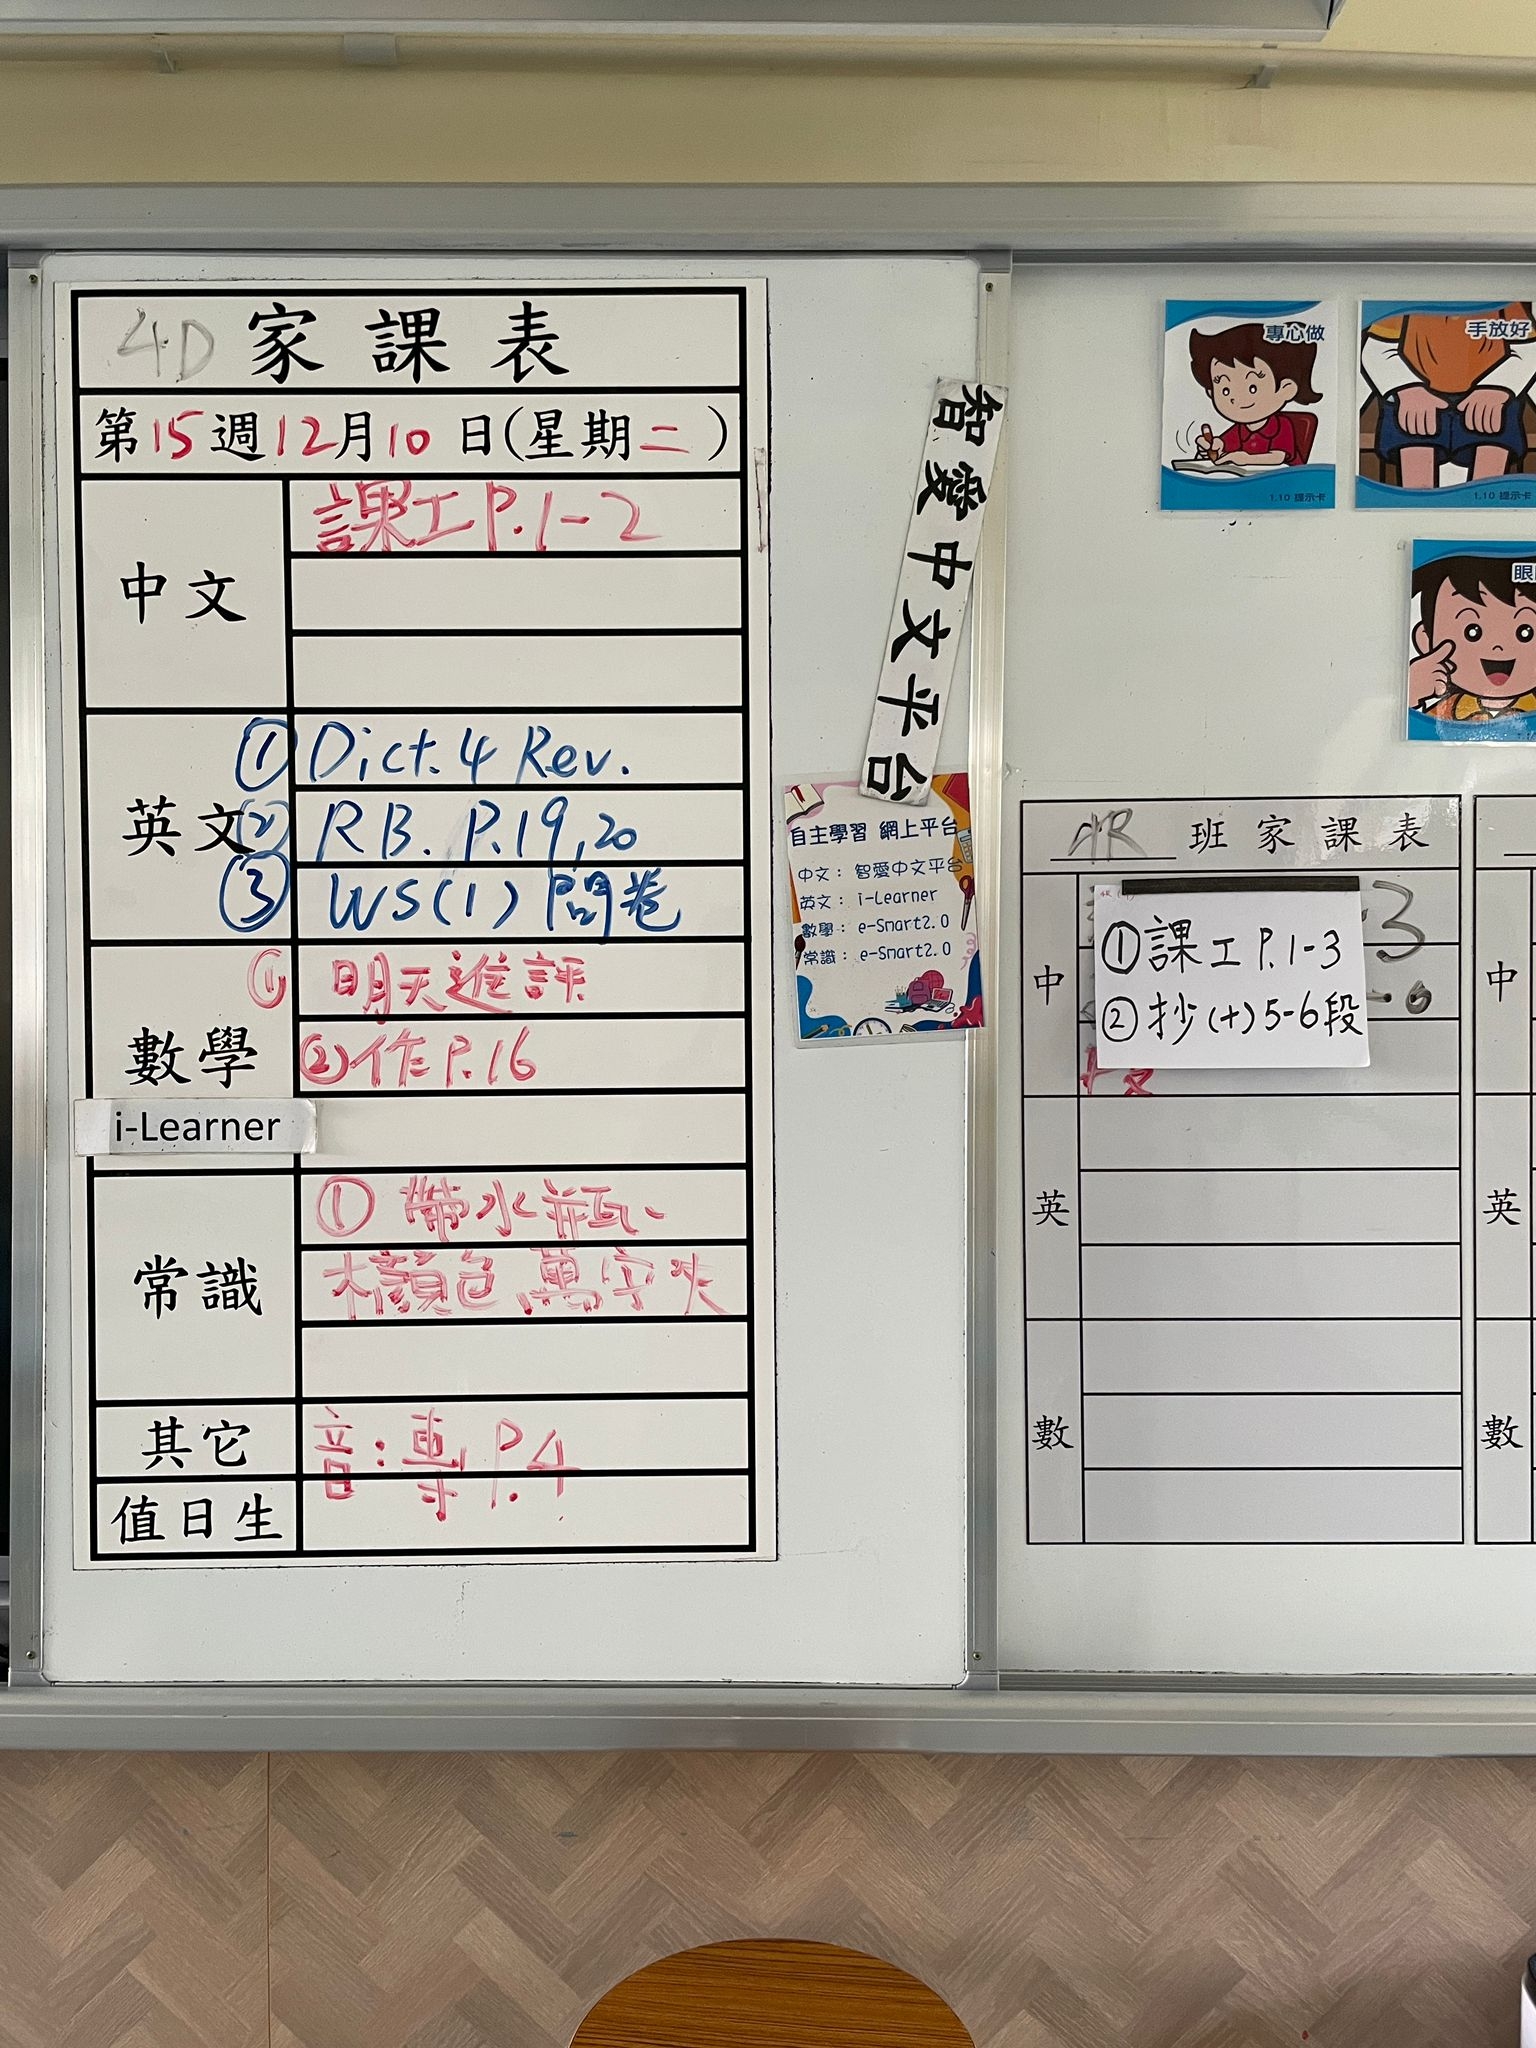 4D 家課表
第15週12月10日(星期二)
中文
課工P.1-2
英文
① Dict.4 Rev.
② RB. P.19,20
③ WS(1) 問卷
數學
① 明天進評
② 作P.16
i-Learner
常識
① 帶水瓶、
顏色萬字夾
其它
音:專P.4
值日生
智愛中文平台
自主學習 網上平台
中文: 智愛中文平台
英文: i-Learner
數學: e-Smart2.0
常識: e-Smart2.0
專心做
1.10 提示卡
手放好
1.10 提示卡
眼
4R 班家課表
中
① 課工P.1-3
② 抄(十)5-6段
3
段
英
數
中
英
數